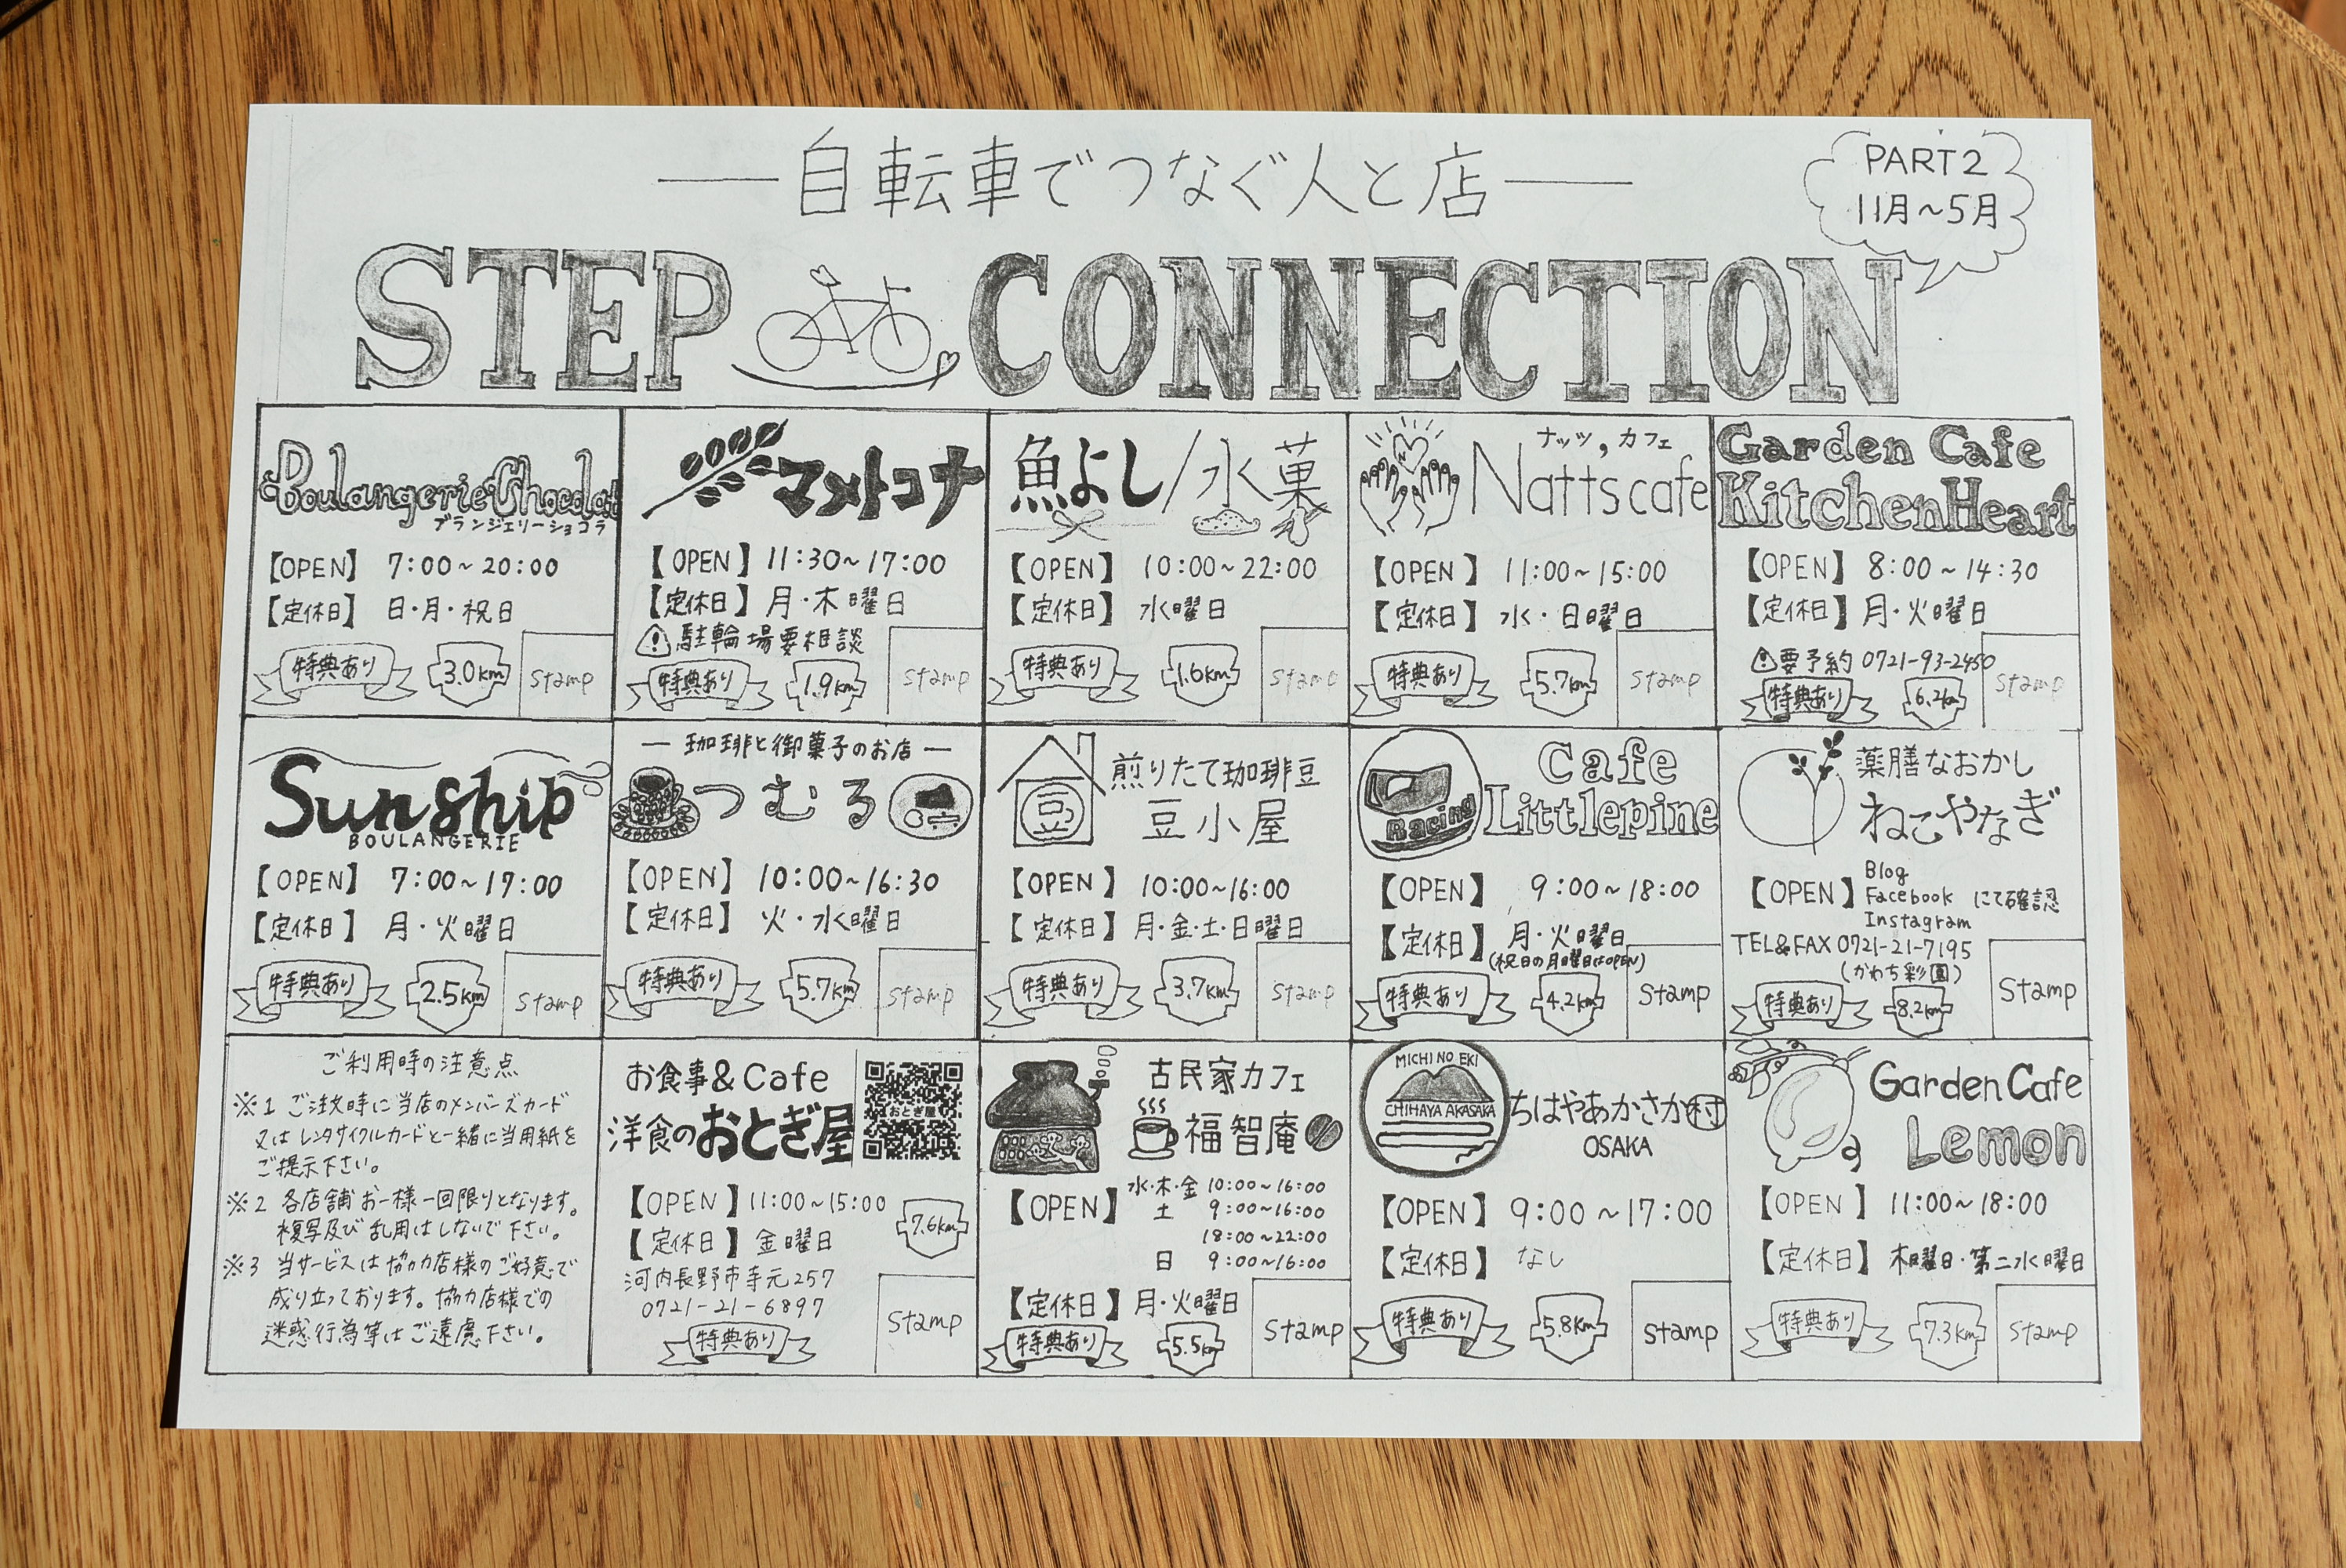 自転車でつなぐ人と店
PART2
11月～5月
STEP CONNECTION
Boulangerie Chocolat
ブランジェリーショコラ
【OPEN】 7:00～20:00
【定休日】 日・月・祝日
特典あり 3.0km stamp
マメトコナ
【OPEN】 11:30～17:00
【定休日】 月・木曜日
駐輪場要相談
特典あり 1.9km stamp
魚よし/水菓
【OPEN】 10:00～22:00
【定休日】 水曜日
特典あり 1.6km stamp
ナッツ,カフェ
Natts cafe
【OPEN】 11:00～15:00
【定休日】 水・日曜日
特典あり 5.7km stamp
Garden Cafe
KitchenHeart
【OPEN】 8:00～14:30
【定休日】 月・火曜日
要予約 0721-93-2450
特典あり 6.2km stamp
Sunship
BOULANGERIE
【OPEN】 7:00～17:00
【定休日】 月・火曜日
特典あり 2.5km stamp
― 珈琲と御菓子のお店 ―
つむる
【OPEN】 10:00～16:30
【定休日】 火・水曜日
特典あり 5.7km stamp
煎りたて珈琲豆
豆 豆小屋
【OPEN】 10:00～16:00
【定休日】 月・金・土・日曜日
特典あり 3.7km stamp
Cafe
Racing Littlepine
【OPEN】 9:00～18:00
【定休日】 月・火曜日
(祝日の月曜日はOPEN)
特典あり 4.2km stamp
薬膳なおかし
ねこやなぎ
【OPEN】 Blog
Facebook にて確認
Instagram
TEL&FAX 0721-21-7195
(かわち彩園)
特典あり 8.2km stamp
ご利用時の注意点
※1 ご注文時に当店のメンバーズカード
又はレンタサイクルカードと一緒に当用紙を
ご提示下さい。
※2 各店舗お一様一回限りとなります。
複写及び乱用はしないで下さい。
※3 当サービスは協力店様のご好意で
成り立っております。協力店様での
迷惑行為等はご遠慮下さい。
お食事&Cafe
洋食のおとぎ屋
おとぎ屋
【OPEN】 11:00～15:00
7.6km
【定休日】 金曜日
河内長野市寺元257
0721-21-6897
特典あり stamp
古民家カフェ
福智庵
【OPEN】 水・木・金 10:00～16:00
土 9:00～16:00
18:00～22:00
日 9:00～16:00
【定休日】 月・火曜日
特典あり 5.5km stamp
MICHI NO EKI
CHIHAYA AKASAKA
ちはやあかさか村
OSAKA
【OPEN】 9:00～17:00
【定休日】 なし
特典あり 5.8km stamp
Garden Cafe
Lemon
【OPEN】 11:00～18:00
【定休日】 木曜日・第二水曜日
特典あり 7.3km stamp